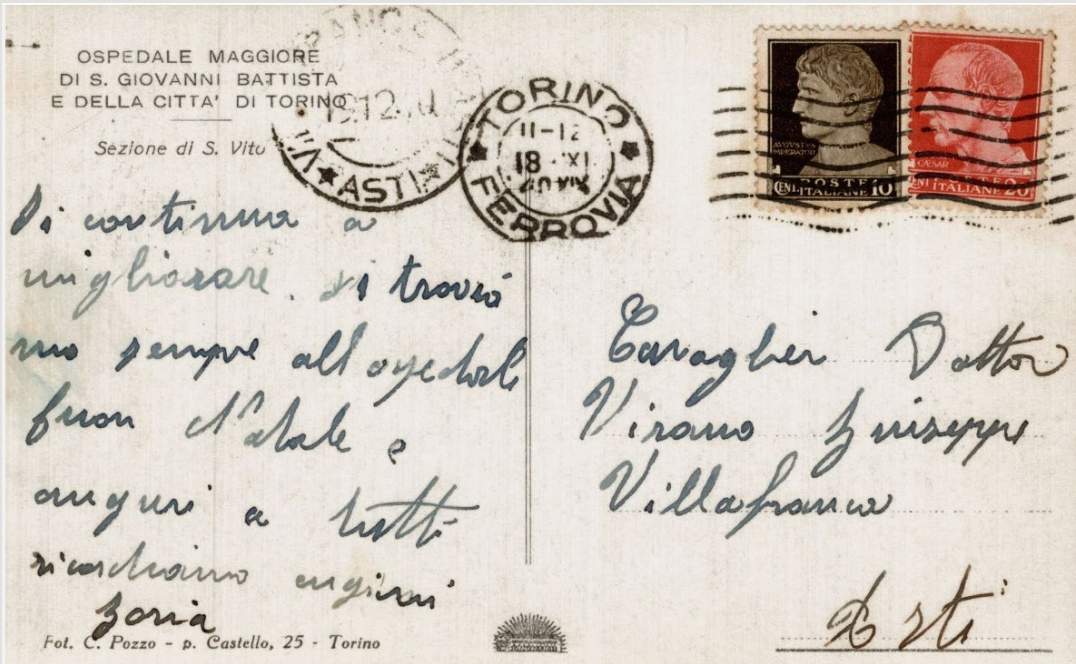 OSPEDALE MAGGIORE
DI S. GIOVANNI BATTISTA
E DELLA CITTA' DI TORINO
Sezione di S. Vito
VILLAFRANCA
19.12.40
★ ASTI ★
TORINO
11-12
18 XI
40 XIX
★ FERROVIA ★
AUGUSTUS
IMPERATOR
POSTE
CENT. ITALIANE 10
CAESAR
POSTE
CENT. ITALIANE 20
Si continua a
migliorare. si trovia
mo sempre all'ospedale
buon Natale e
auguri a tutti
ricordiamo
Cavaglier Dottor
Virano Giuseppe
Villafranca
Asti
Fot. C. Pozzo - p. Castello, 25 - Torino